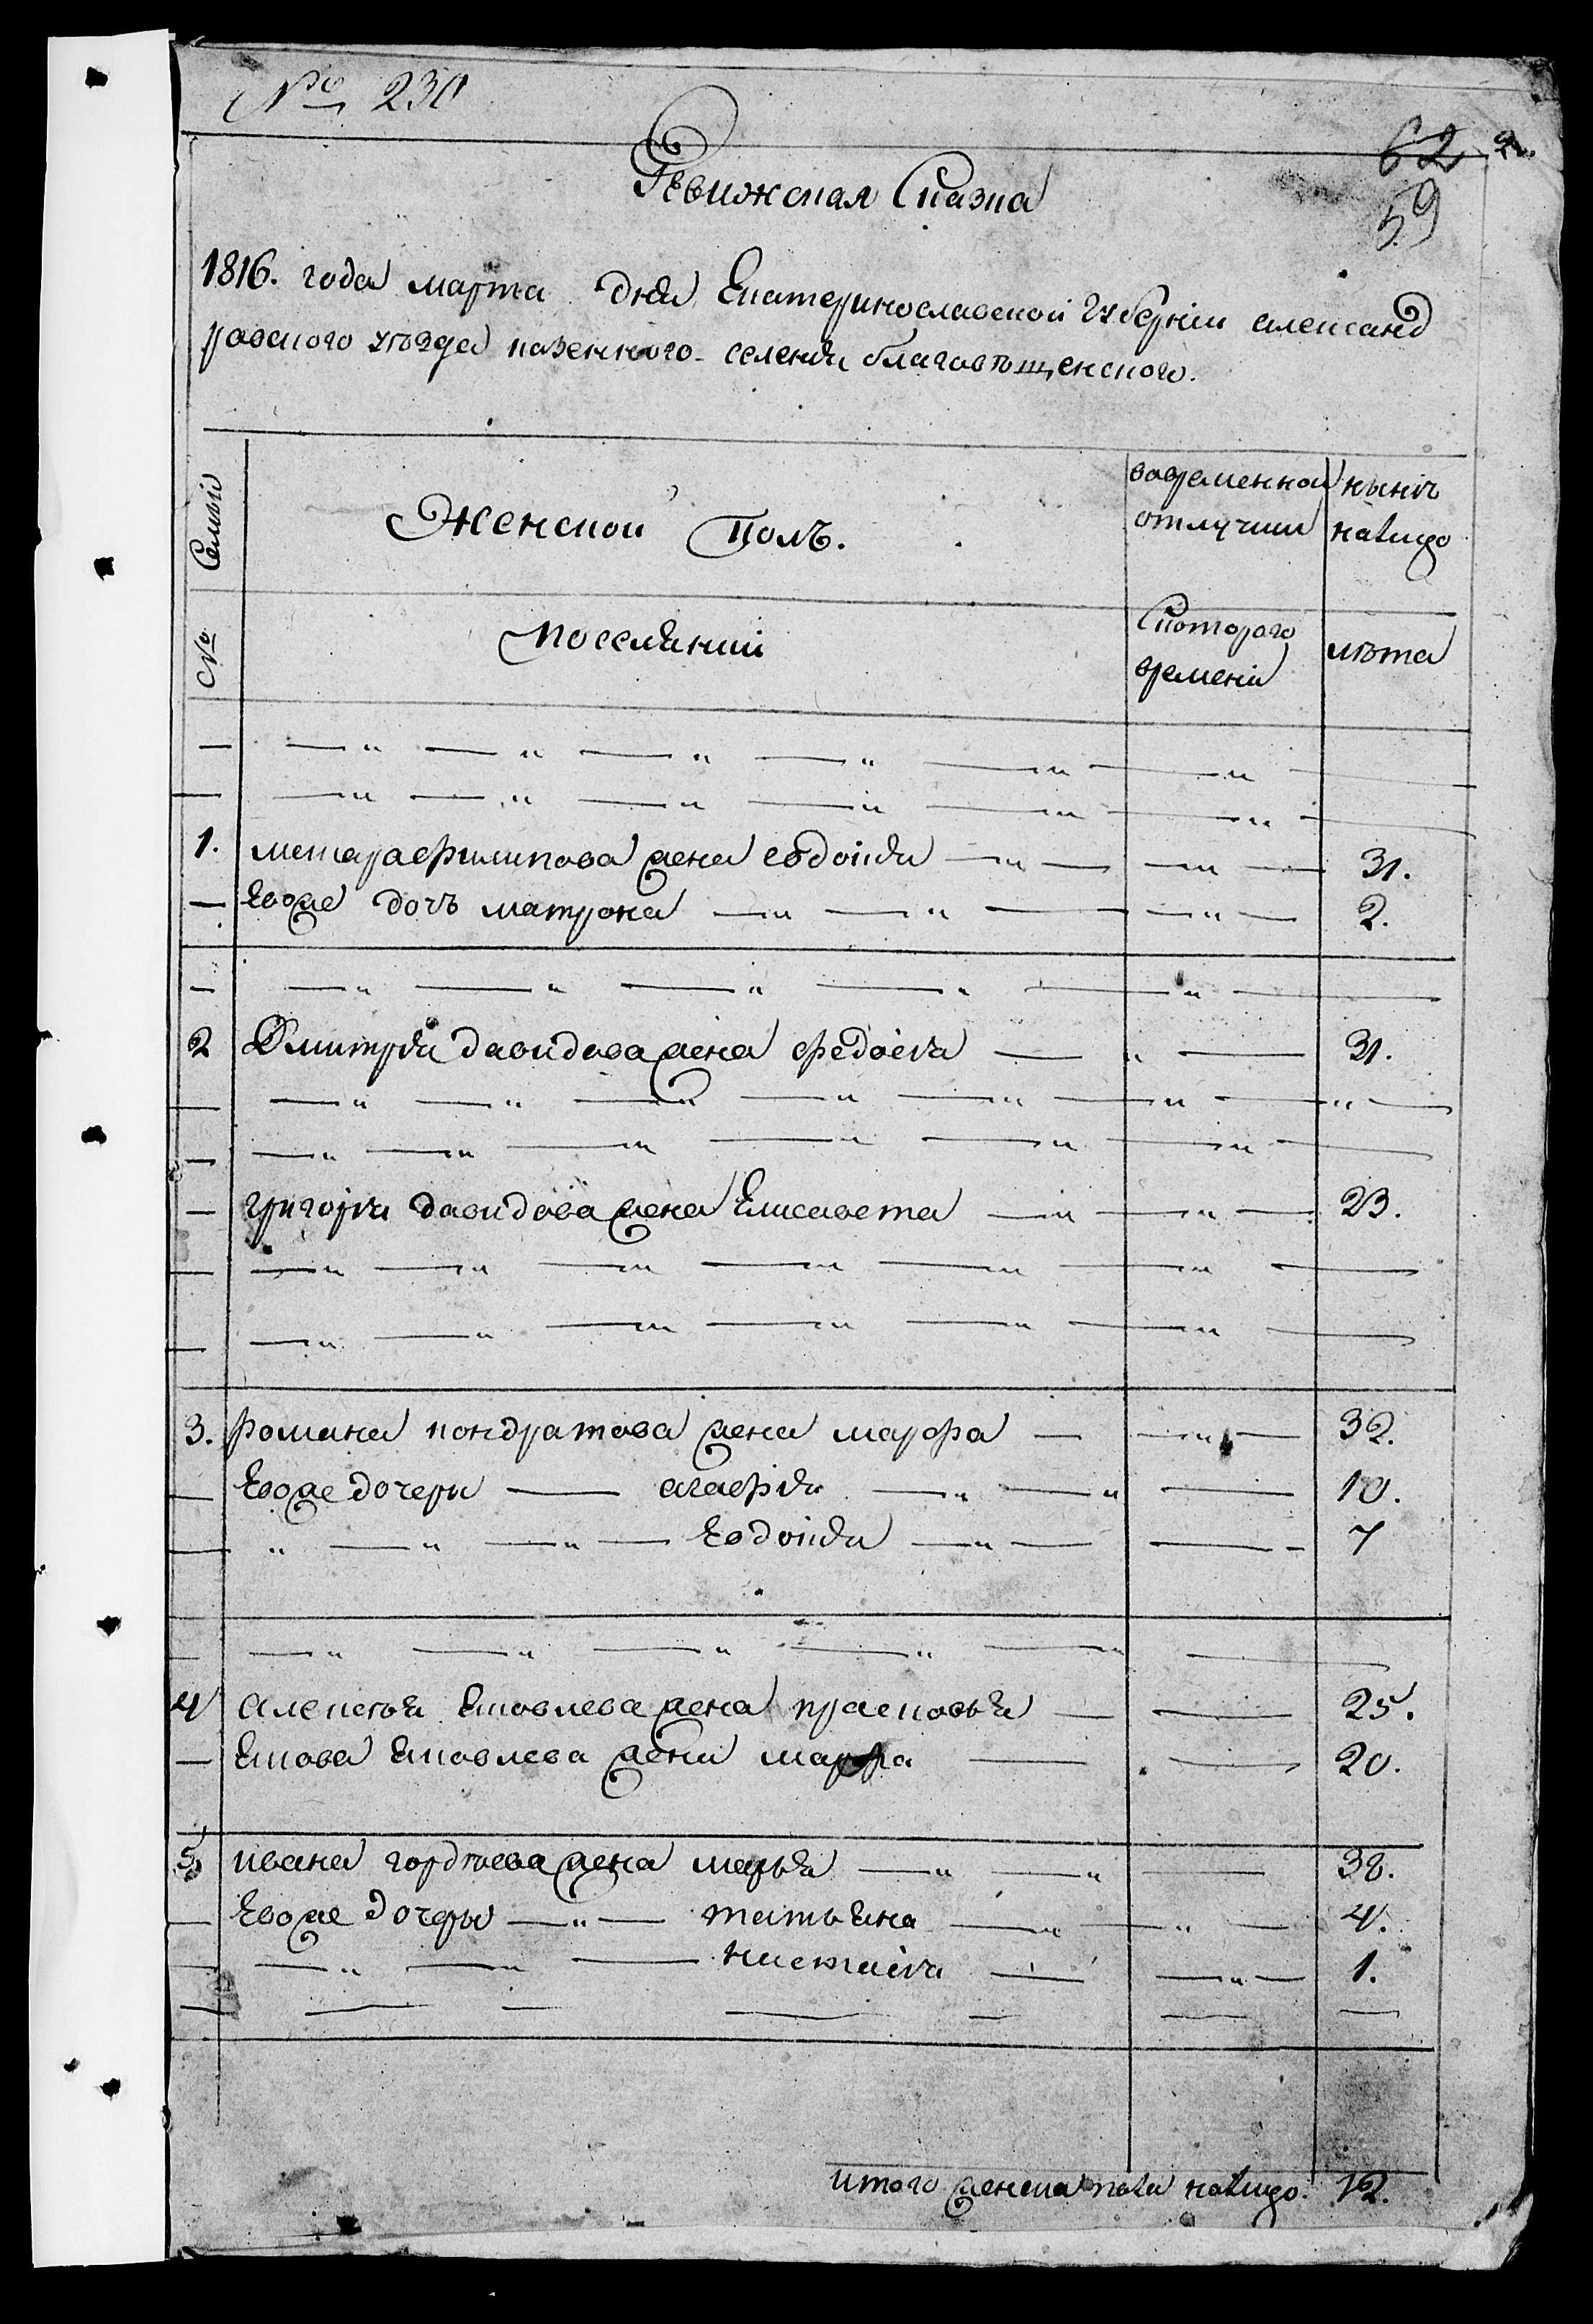 № 230
62
59
Ревижская Сказка
1816. года марта дня Екатеринославской Губерніи александ
ровского уѣзда казенного селения благовѣщенского.
№ Семьи
Женской полъ.
вовременной отлучки
нынѣ налицо
поселянии
Скоторого времени
лѣта
1. филипова жена евдокия 31.
Евоже дочь матрона 2.
2 Дмитрия давидова жена федосия 31.
григория давидова жена Елисавета 23.
3. романа кондратова жена марфа 32.
Евоже дочери агафия 10.
Евдокия 7
4 алексѣя Яковлева жена прасковья 25.
Якова Яковлева жена марфа 20.
5 ивана гордѣева жена марья 38.
Евоже дочеры татьяна 4.
настасия 1.
итого женска пола налицо. 12.